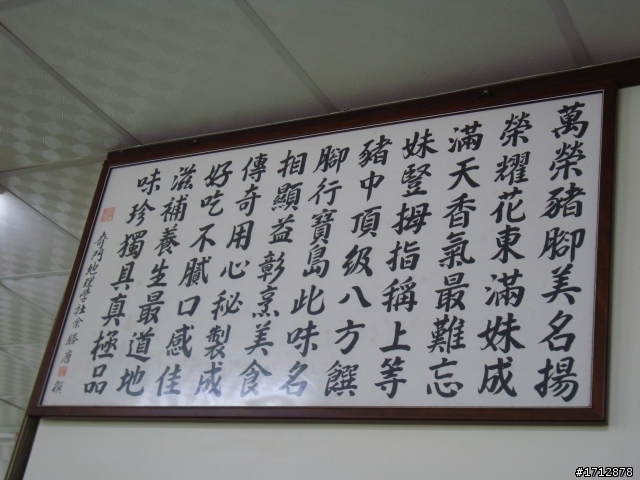 萬榮豬腳美名揚
榮耀花東滿妹成
滿天香氣最難忘
妹豎拇指稱上等
豬中頂級八方饌
腳行寶島此味名
相顯益彰烹美食
傳奇用心秘製成
好吃不膩口感佳
滋補養生最道地
味珍獨具真極品
奇門地理學社 撰
#1712878